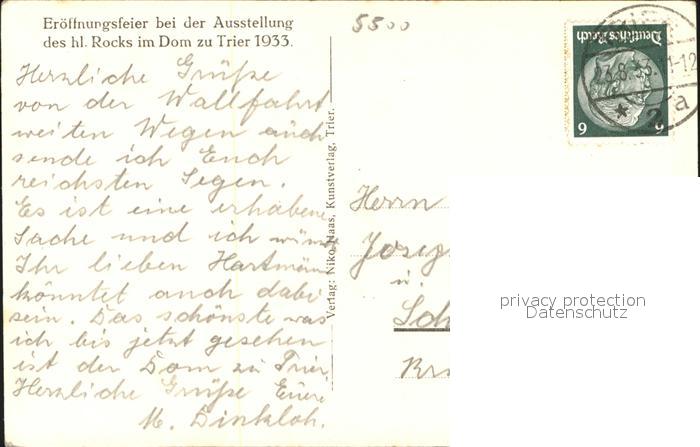 Eröffnungsfeier bei der Ausstellung
des hl. Rocks im Dom zu Trier 1933.
5500
Herzliche Grüße
von der Wallfahrt
weiten Wegen auch
sende ich Euch
reichsten Segen.
Es ist eine erhabene
Sache und ich
Ihr lieben
könntet auch dabei
sein. Das schönste was
ich bis jetzt gesehen
ist der Dom zu Trier
Herzliche Grüße Eure
M. Dinkloh.
Verlag: Niko Haas, Kunstverlag, Trier.
Deutsches Reich
6 6
11-12
* 2 a
Herrn
Josef
u.
Sch
privacy protection
Datenschutz